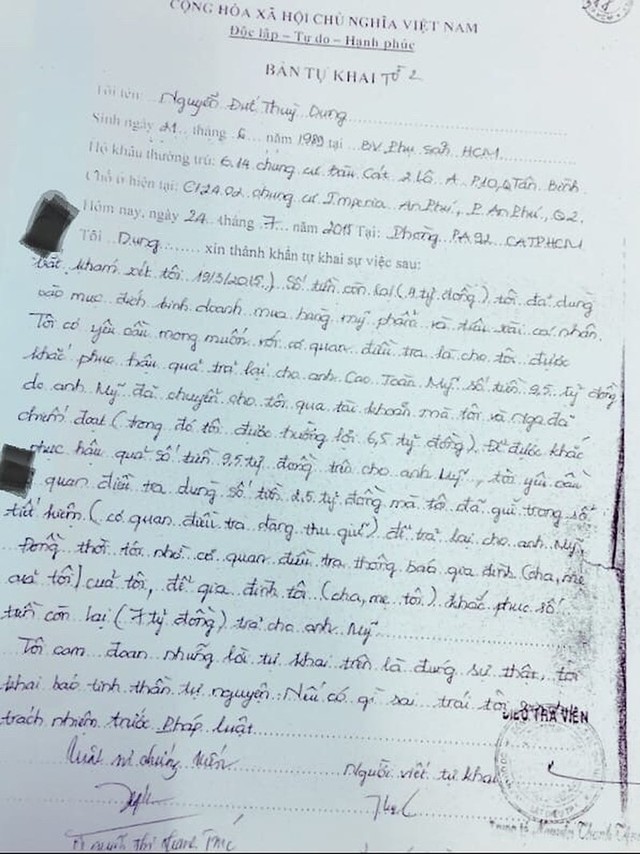 CỘNG HÒA XÃ HỘI CHỦ NGHĨA VIỆT NAM
Độc lập – Tự do – Hạnh phúc
BẢN TỰ KHAI TỜ 2
Tôi tên: Nguyễn Đức Thuỳ Dung
Sinh ngày 21 tháng 6 năm 1989 tại BV Phụ Sản HCM
Hộ khẩu thường trú: 6.14 chung cư Bàu Cát 2 lô A P10, Q Tân Bình
Chỗ ở hiện tại: C1.24.02 chung cư Imperia An Phú, P. An Phú, Q2.
Hôm nay, ngày 24 tháng 7 năm 2015 Tại: Phòng PA92 CATPHCM
Tôi Dung xin thành khẩn tự khai sự việc sau:
bắt khám xét tôi 19/3/2015.) Số tiền còn lại (4 tỷ đồng) tôi đã dùng
vào mục đích kinh doanh mua hàng mỹ phẩm và tiêu xài cá nhân.
Tôi có yêu cầu mong muốn với cơ quan điều tra là cho tôi được
khắc phục hậu quả trả lại cho anh Cao Toàn Mỹ số tiền 9,5 tỷ đồng
do anh Mỹ đã chuyển cho tôi qua tài khoản mà tôi và Nga đã
chiếm đoạt (trong đó tôi được hưởng lợi 6,5 tỷ đồng). Để được khắc
phục hậu quả số tiền 9,5 tỷ đồng trả cho anh Mỹ, tôi yêu cầu
quan điều tra dùng số tiền 2,5 tỷ đồng mà tôi đã gửi trong sổ
tiết kiệm (cơ quan điều tra đang thu giữ) để trả lại cho anh Mỹ.
Đồng thời tôi nhờ cơ quan điều tra thông báo gia đình (cha, mẹ
của tôi) của tôi, để gia đình tôi (cha, mẹ tôi) khắc phục số
tiền còn lại (7 tỷ đồng) trả cho anh Mỹ
Tôi cam đoan những lời tự khai trên là đúng sự thật, tôi
khai báo tinh thần tự nguyện. Nếu có gì sai trái tôi
trách nhiệm trước Pháp luật
ĐIỀU TRA VIÊN
Luật sư chứng kiến
Người viết tự khai
Trung tá Nguyễn Thanh